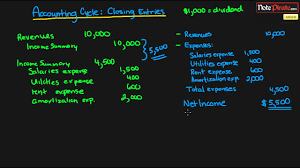 Accounting Cycle: Closing Entries
$1,000 = dividend
NotePirate.com
Revenues 10,000
Income Summary 10,000
5,500
Income Summary 4,500
Salaries expense 1,500
Utilities expense 400
rent expense 600
amortization exp. 2,000
- Revenues 10,000
- Expenses:
Salaries expense 1,500
Utilities expense 400
Rent expense 600
Amortization exp. 2,000
Total expenses 4,500
Net Income $5,500